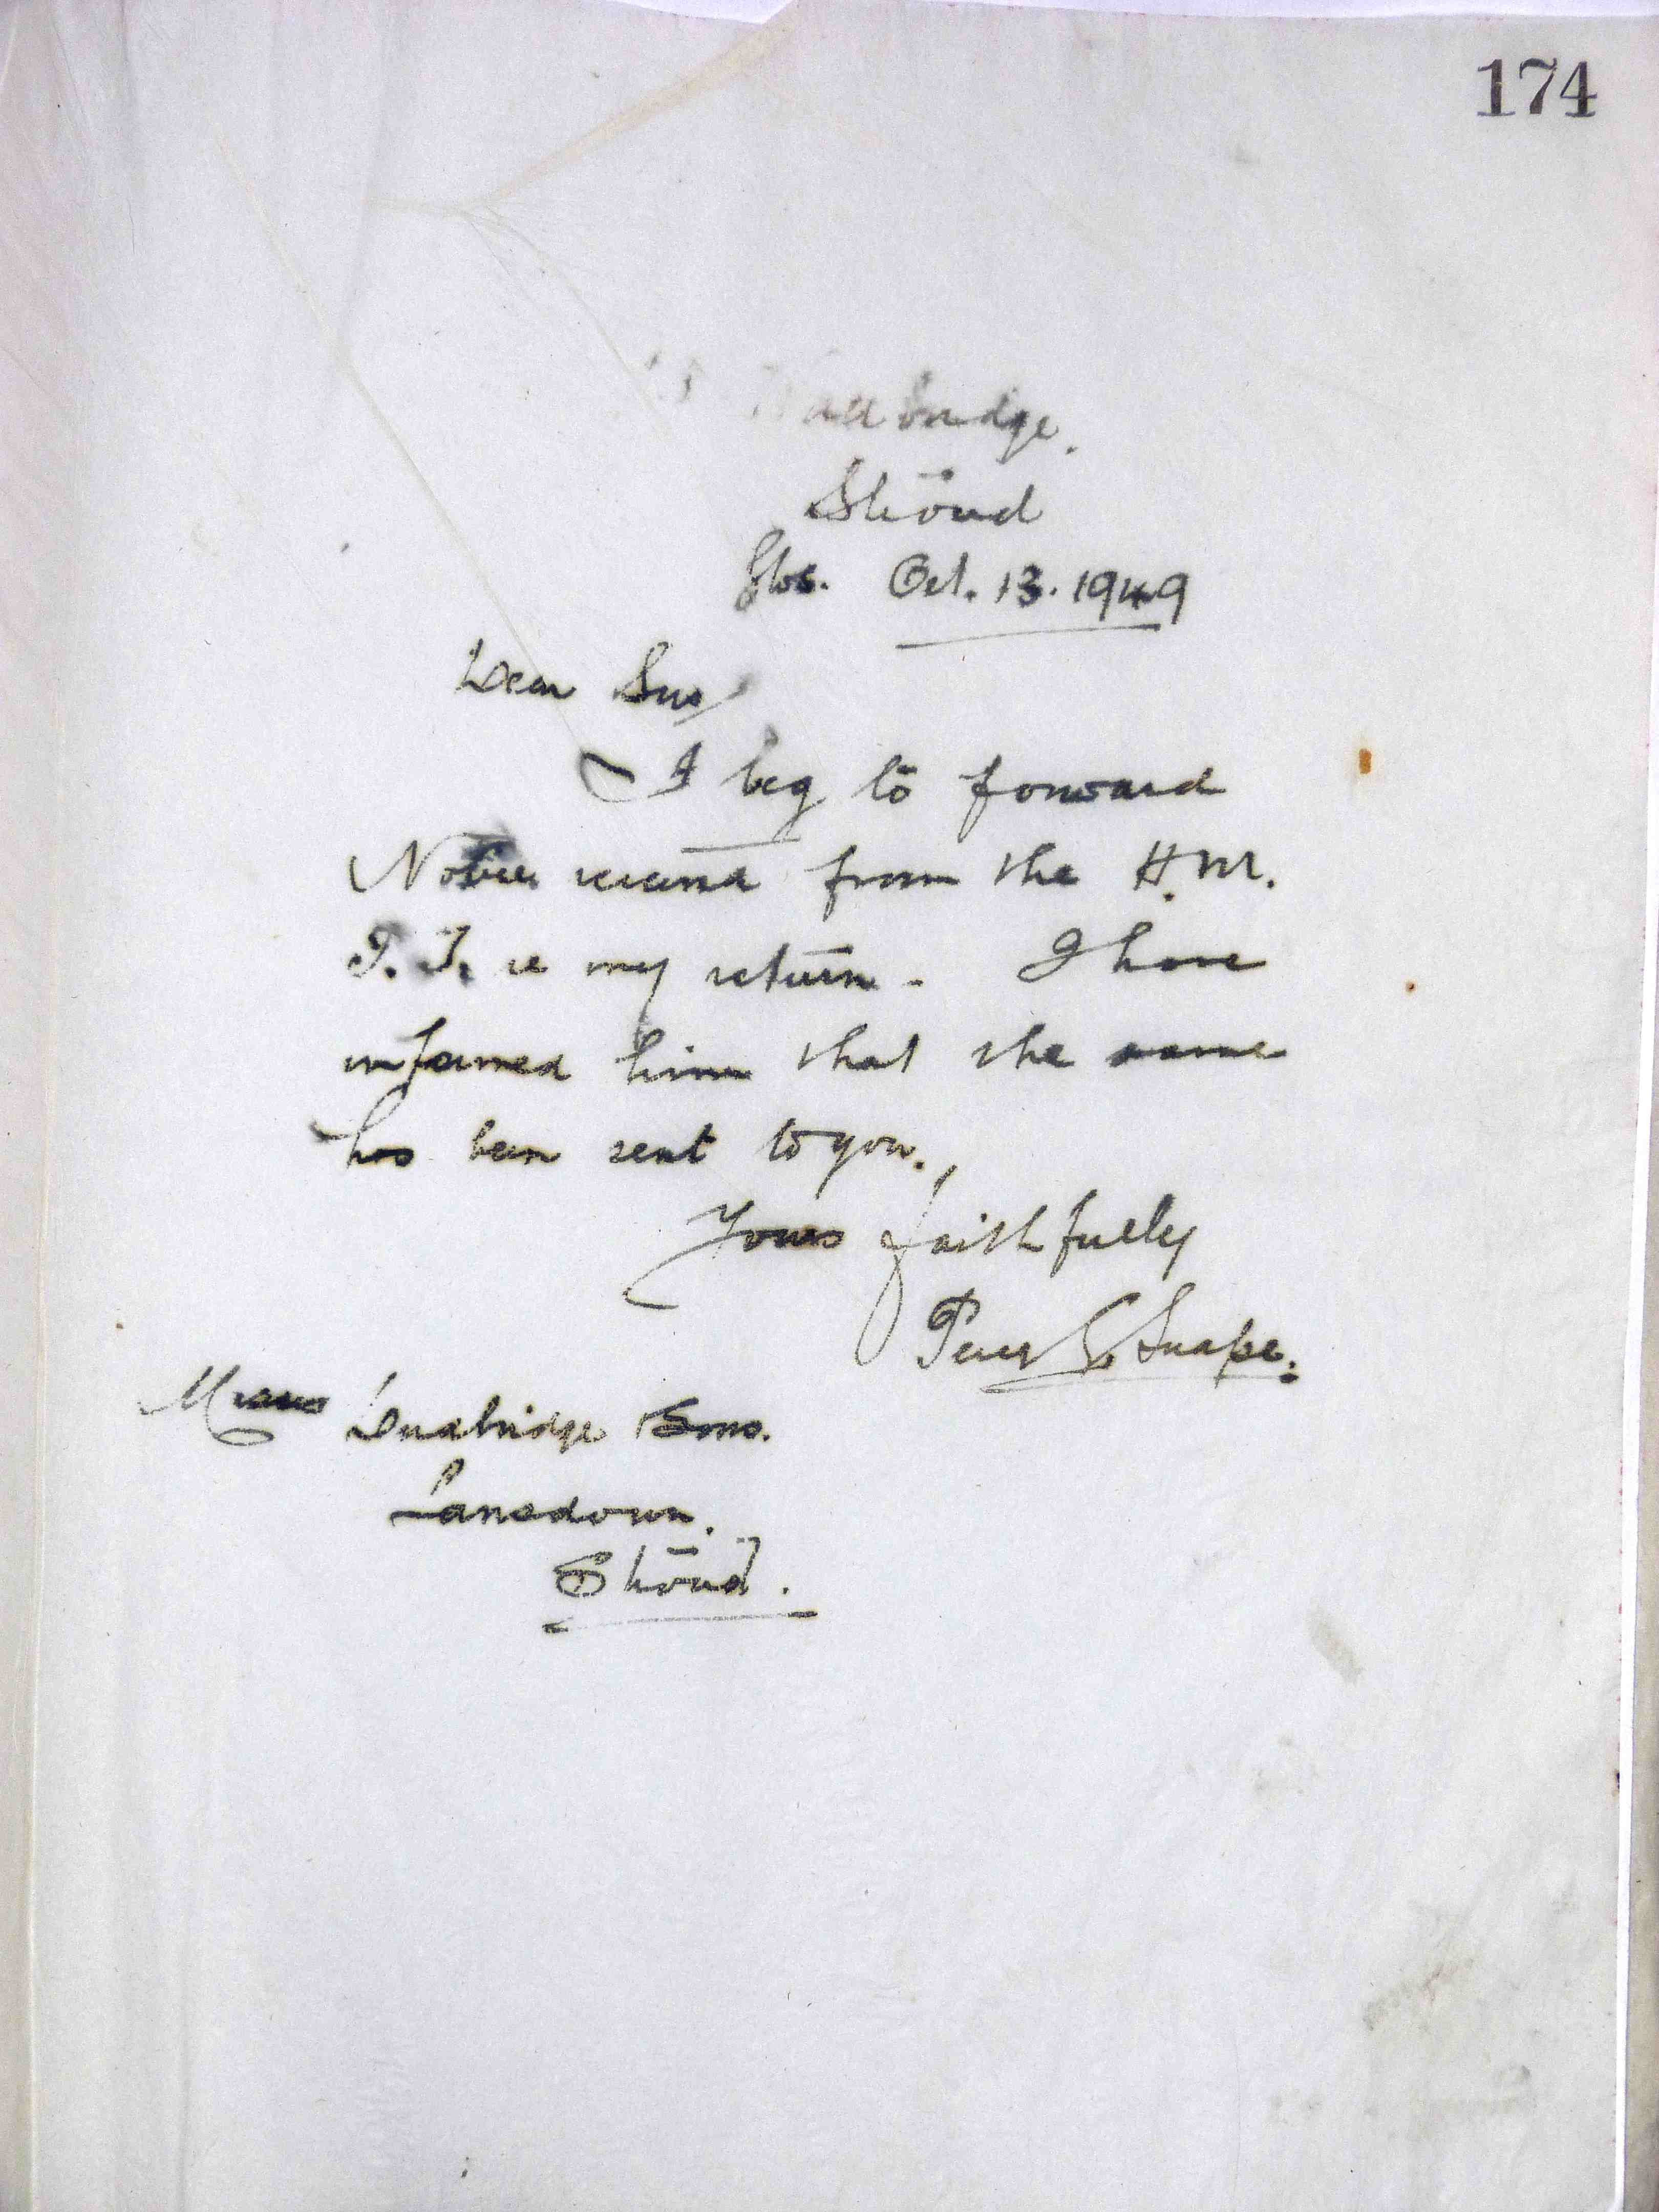 174
Wallbridge.
Stroud
Glos. Oct. 13. 1949
Dear Sirs,
I beg to forward
Notice received from the H.M.
I. T. re my return. I have
informed him that the same
has been sent to you.,
Yours faithfully
Percy Snape.
Messrs Dudbridge & Sons.
Lansdown.
Stroud.